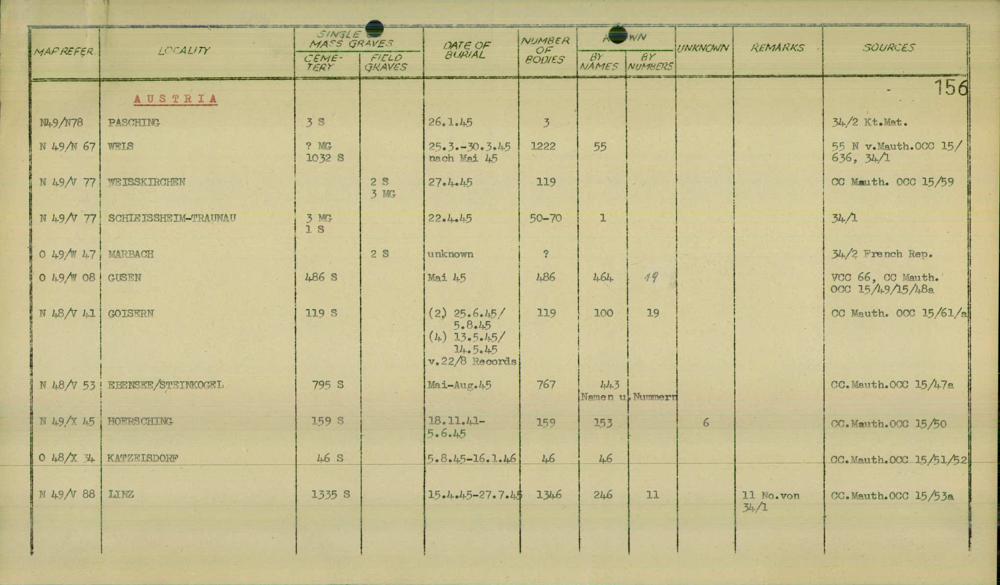 MAP REFER. LOCALITY SINGLE MASS GRAVES DATE OF BURIAL NUMBER OF BODIES UNKNOWN REMARKS SOURCES
CEMETERY FIELD GRAVES BY NAMES BY NUMBERS
156
AUSTRIA
N49/N78 PASCHING 3 S 26.1.45 3 34/2 Kt.Mat.
N 49/N 67 WEIS ? MG 25.3.-30.3.45 1222 55 55 N v.Mauth.OCC 15/
1032 S nach Mai 45 636, 34/1
N 49/V 77 WEISSKIRCHEN 2 S 27.4.45 119 CC Mauth. OCC 15/59
3 MG
N 49/V 77 SCHIEISSHEIM-TRAUNAU 3 MG 22.4.45 50-70 1 34/1
1 S
O 49/W 47 MARBACH 2 S unknown ? 34/2 French Rep.
O 49/W 08 GUSEN 486 S Mai 45 486 464 19 VCC 66, CC Mauth.
OCC 15/49/15/48a
N 48/V 41 GOISERN 119 S (2) 25.6.45/ 119 100 19 CC Mauth. OCC 15/61/a
5.8.45
(4) 13.5.45/
14.5.45
v.22/8 Records
N 48/V 53 EBENSKE/STEINKOGEL 795 S Mai-Aug.45 767 443 CC.Mauth.OCC 15/47a
Namen u.Nummern
N 49/X 45 HOERSCHING 159 S 18.11.41- 159 153 6 CC.Mauth.OCC 15/50
5.6.45
O 48/X 34 KATZEISDORF 46 S 5.8.45-16.1.46 46 46 CC.Mauth.OCC 15/51/52
N 49/V 88 LINZ 1335 S 15.4.45-27.7.45 1346 246 11 11 No.von CC.Mauth.OCC 15/53a
34/1